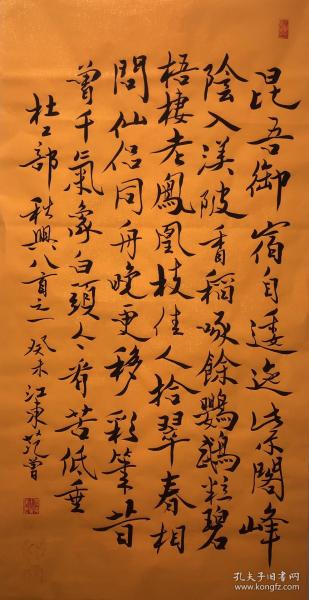 昆吾御宿自逶迤紫阁峰
阴入渼陂香稻啄馀鹦鹉粒碧
梧棲老鳳凰枝佳人拾翠春相
問仙侣同舟晚更移彩筆昔
曾干氣象白頭今看苦低垂
杜工部秋興八首之一癸未江東范曾
孔夫子旧书网